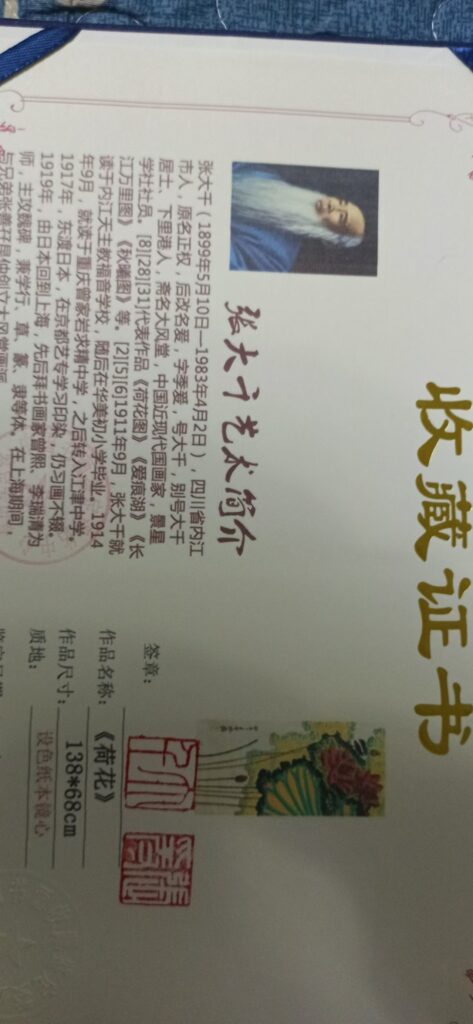 收藏证书
张大千艺术简介
张大千（1899年5月10日—1983年4月2日），四川省内江
市人，原名正权，后改名爰，字季爰，号大千，别号大千
居士、下里港人，斋名大风堂，中国近现代国画家，景星
学社社员。[8][28][31]代表作品《荷花图》《爱痕湖》《长
江万里图》《秋曦图》等。[2][5][6]1911年9月，张大千就
读于内江天主教福音学校，随后在华美初小学毕业。1914
年9月，就读于重庆曾家岩求精中学，之后转入江津中学。
1917年，东渡日本，在京都艺专学习印染，仍习画不辍。
1919年，由日本回到上海，先后拜书画家曾熙、李瑞清为
师，主攻魏碑，兼学行、草、篆、隶等体，在上海期间，
与兄弟张善孖昆仲创立大风堂画派
签章：
作品名称：《荷花》
作品尺寸：138*68cm
质地：设色纸本镜心